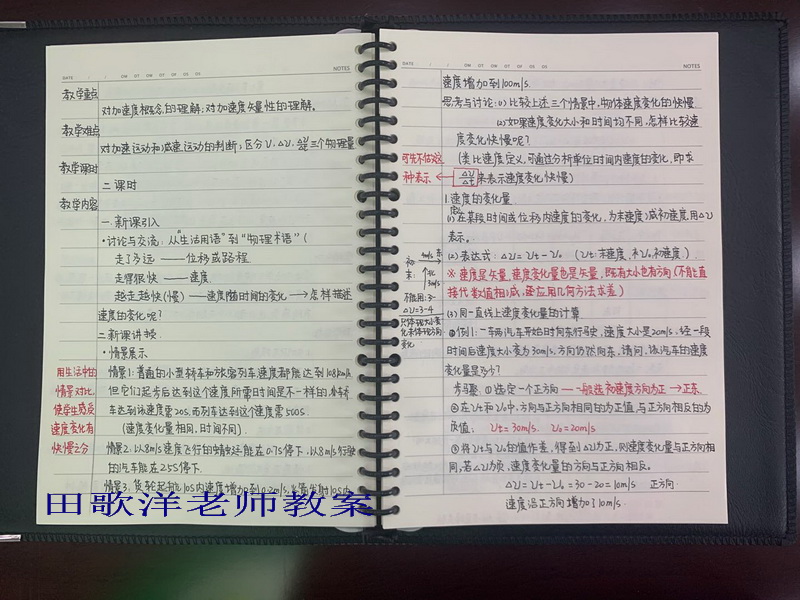 DATE / / OM OT OW OT OF OS OS NOTES
教学重点
对加速度概念的理解；对加速度矢量性的理解。
教学难点
对加速运动和减速运动的判断；区分v、Δv、Δv/Δt三个物理量
教学课时
二课时
教学内容
一.新课引入
·讨论与交流：从"生活用语"到"物理术语"(
走了多远——位移或路程
走得很快——速度
越走越快(慢)——速度随时间的变化→怎样描述
速度的变化呢?
二.新课讲授.
·情景展示
用生活中的
情景对比,
使学生感受
速度变化有
快慢之分
情景1:普通的小型轿车和旅客列车,速度都能达到108km/h.
但它们起步后达到这个速度所需时间是不一样的.
车达到该速度需20s,而列车达到这个速度需500s.
(速度变化量相同,时间不同).
情景2.以8m/s速度飞行的蜻蜓能在0.7s停下,以8m/s行驶
的汽车能在2.5s停下.
情景3.货轮起航,10s内速度增加到0.2m/s,火箭发射10s内
田歌洋老师教案
DATE / / OM OT OW OT OF OS OS NOTES
速度增加到100m/s.
思考与讨论:(1)比较上述三个情景中,物体速度变化的快慢
(2)如果速度变化大小和时间均不同,怎样比较速
度变化快慢呢?
可先不估这
种表示←
(类比速度定义,可通过分析单位时间内速度的变化,即求
Δv/Δt来表示速度变化快慢)
1.速度的变化量
(1)在某段时间或位移内速度的变化,为末速度减初速度,用Δv
表示。
(2)表达式:Δv=vt-v0 (vt:末速度,v0:初速度.)
※速度是矢量,速度变化量也是矢量,既有大小也有方向(不能直
接代数值相减,还应用几何方法求差)
初 4m/s 东
末: 北
3m/s
不能用:3-
Δv=3-4
只体现大小变
化未体现方向
变化
(3)同一直线上速度变化量的计算
①例1:一车两汽车开始时向东行驶,速度大小是20m/s,经一段
时间后速度大小变为30m/s,方向仍然向东,请问,该汽车的速度
变化量是多少?
步骤:①选定一个正方向—一般选初速度方向为正→正东.
②在vt和v0中,方向与正方向相同的为正值,与正方向相反的为
负值; vt=30m/s. v0=20m/s
③将vt与v0的值作差,得到Δv为正,则速度变化量与正方向相
同,若Δv为负,速度变化量的方向与正方向相反。
Δv=vt-v0=30-20=10m/s 正方向
速度沿正方向增加了10m/s.